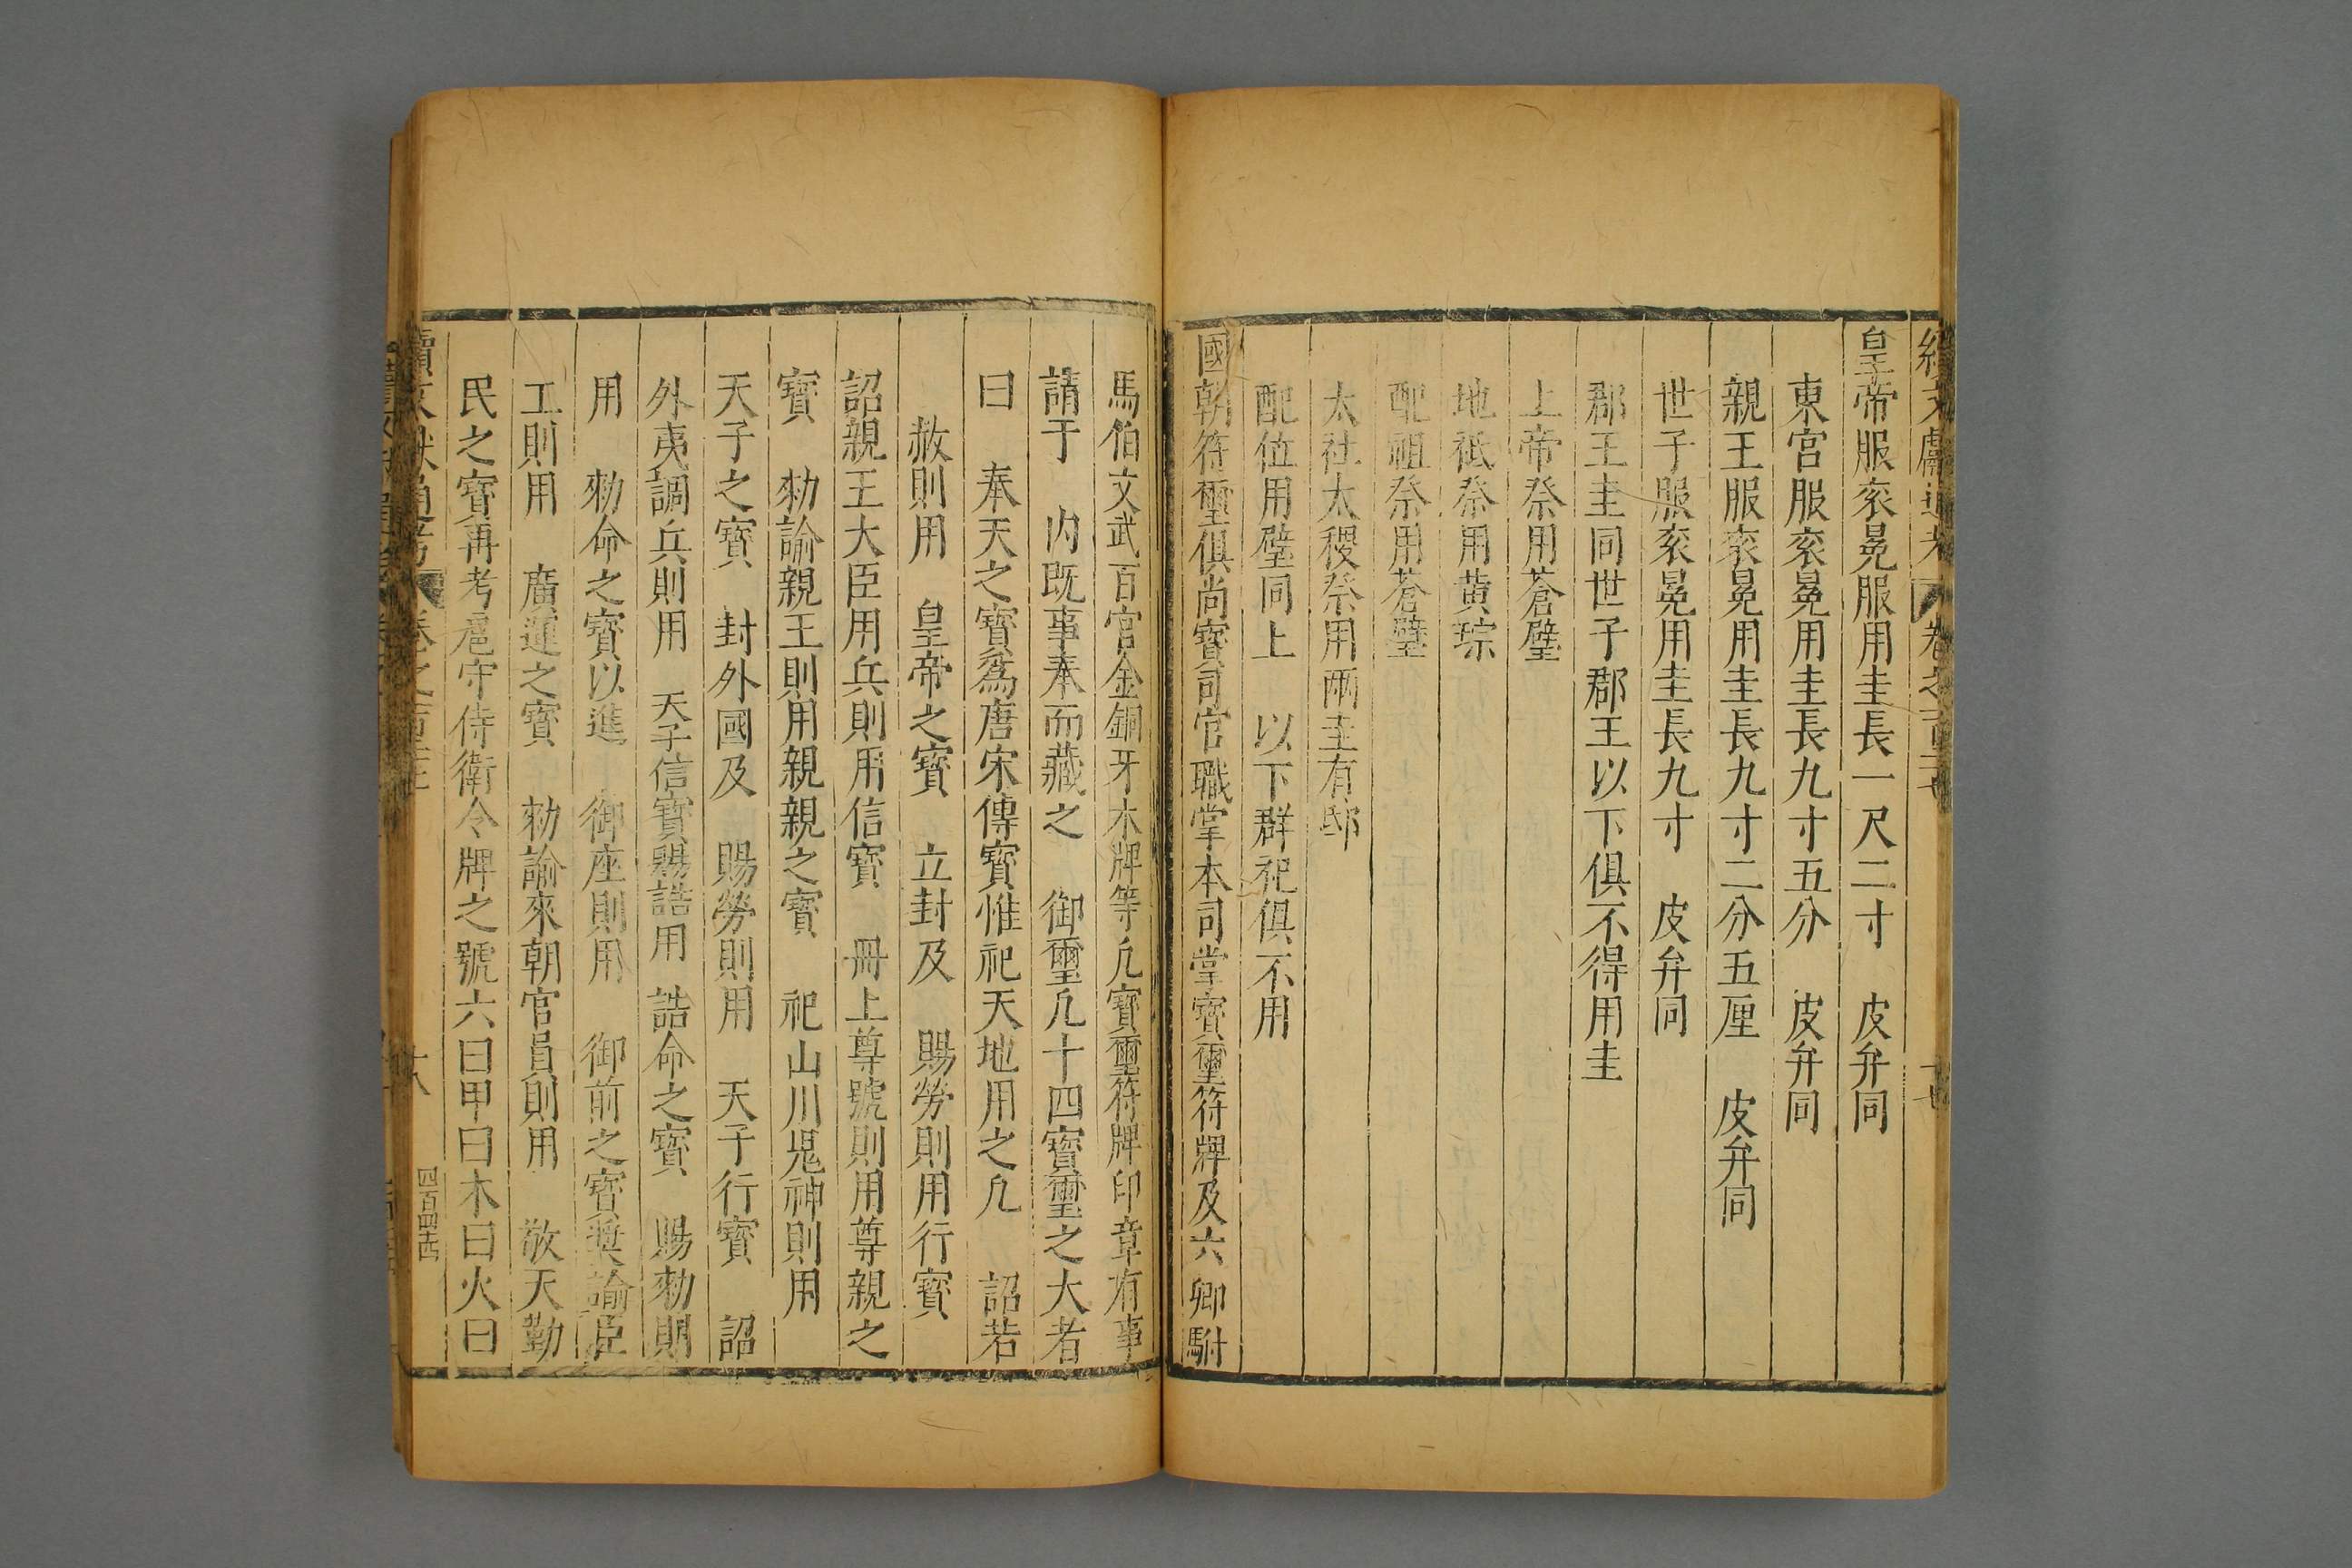 皇帝服衮冕服用圭長一尺二寸　皮弁同
東宮服衮冕用圭長九寸五分　皮弁同
親王服衮冕用圭長九寸二分五厘　皮弁同
世子服衮冕用圭長九寸　皮弁同
郡王圭同世子郡王以下俱不得用圭
上帝祭用蒼璧
地祇祭用黄琮
配祖祭用蒼璧
太社太稷祭用兩圭有邸
配位用璧同上　以下群祀俱不用
國朝符璽俱尚寳司官職掌本司掌寳璽符牌及六卿駙
馬伯文武百官金銅牙木牌等凢寳璽符牌印章有事
請于　内既事奉而藏之　御璽凢十四寳璽之大者
曰　奉天之寳爲唐宋傳寳惟祀天地用之凢　詔若
赦則用　皇帝之寳　立封及　賜勞則用行寳
詔親王大臣用兵則用信寳　冊上尊號則用尊親之
寳　勑諭親王則用親親之寳　祀山川鬼神則用
天子之寳　封外國及　賜勞則用　天子行寳　詔
外夷調兵則用　天子信寳賜誥用　誥命之寳　賜勑則
用　勑命之寳以進　御座則用　御前之寳奬諭臣
工則用　廣運之寳　勑諭來朝官員則用　敬天勤
民之寳再考扈守侍衛令牌之號六曰甲曰木曰火曰
續文獻通考　卷之
十八
四百四十四